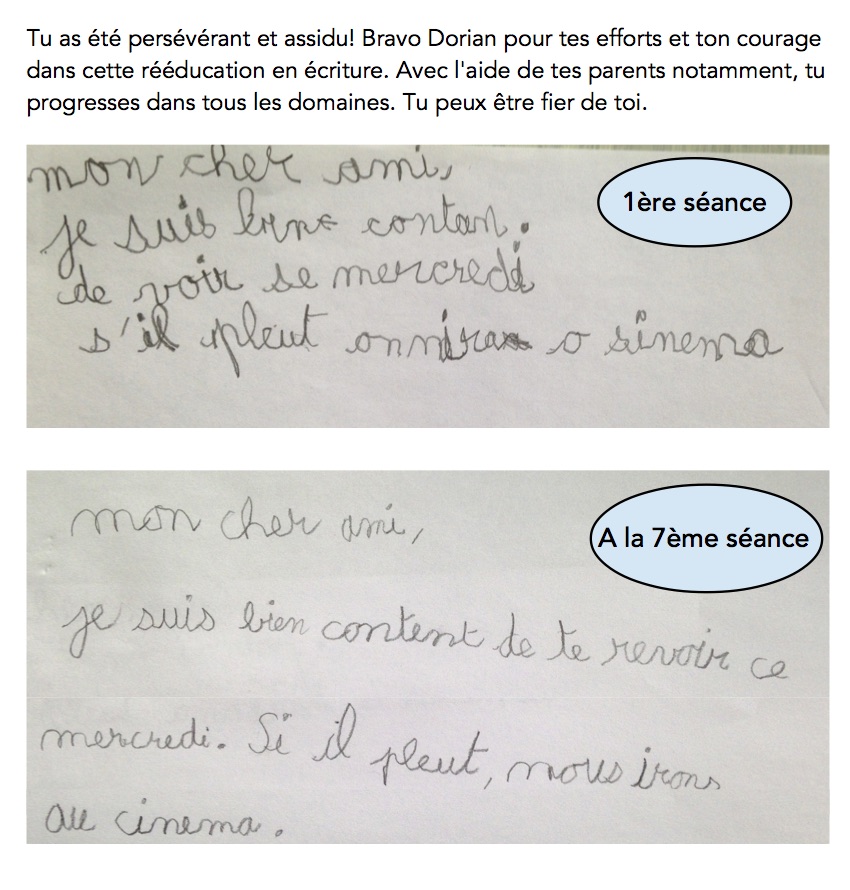 Tu as été persévérant et assidu! Bravo Dorian pour tes efforts et ton courage
dans cette rééducation en écriture. Avec l'aide de tes parents notamment, tu
progresses dans tous les domaines. Tu peux être fier de toi.
mon cher ami,
1ère séance
je suis contan.
de voir se mercredi
s'il pleut onnira o sinema
mon cher ami,
A la 7ème séance
je suis bien content de te revoir ce
mercredi. Si il pleut, nous irons
au cinema.